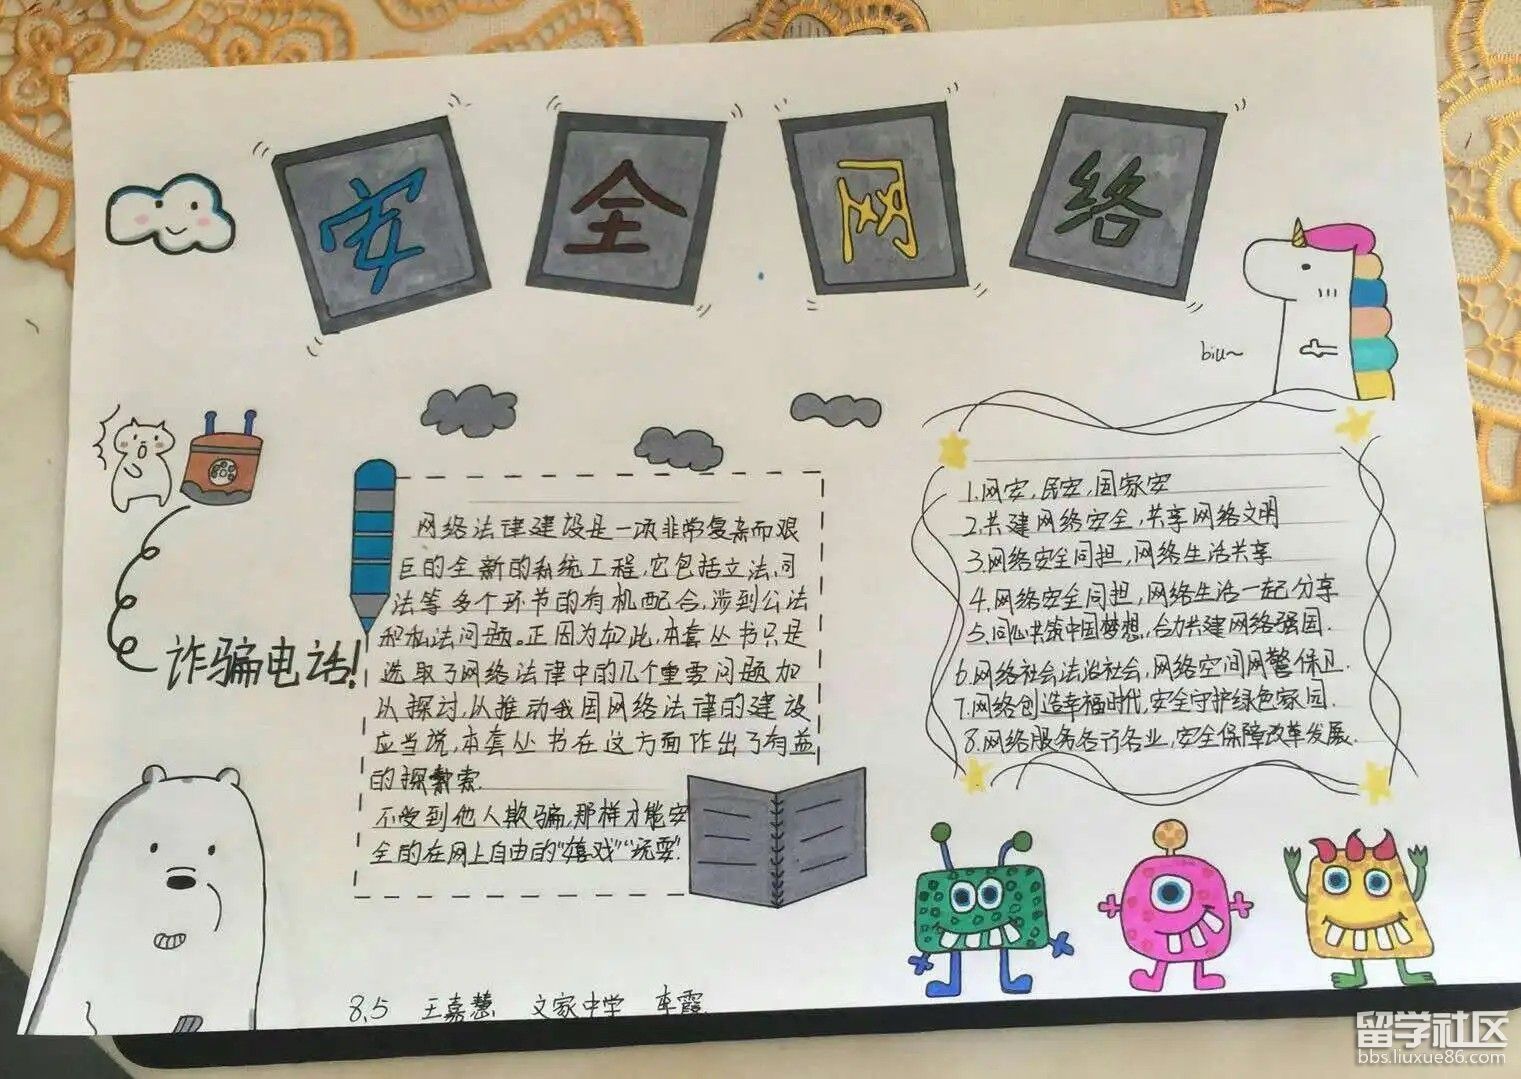 安全网络
biu~
诈骗电话!
网络法律建设是一项非常复杂而艰
巨的全新的系统工程,它包括立法、司
法等多个环节的有机配合,涉到公法
和私法问题。正因为如此,本套丛书只是
选取了网络法律中的几个重要问题加
以探讨,以推动我国网络法律的建设
应当说,本套丛书在这方面作出了有益
的探索.
不受到他人欺骗,那样才能安
全的在网上自由的“嬉戏”“玩耍”.
1.网安,民安,国家安
2.共建网络安全,共享网络文明
3.网络安全同担,网络生活共享
4.网络安全同担,网络生活一起分享
5.同心共筑中国梦想,合力共建网络强国.
6.网络社会法治社会,网络空间网警保卫.
7.网络创造幸福时代,安全守护绿色家园.
8.网络服务各行各业,安全保障改革发展.
8.5 王嘉慧 文家中学 车霞
留学社区
bbs.liuxue86.com